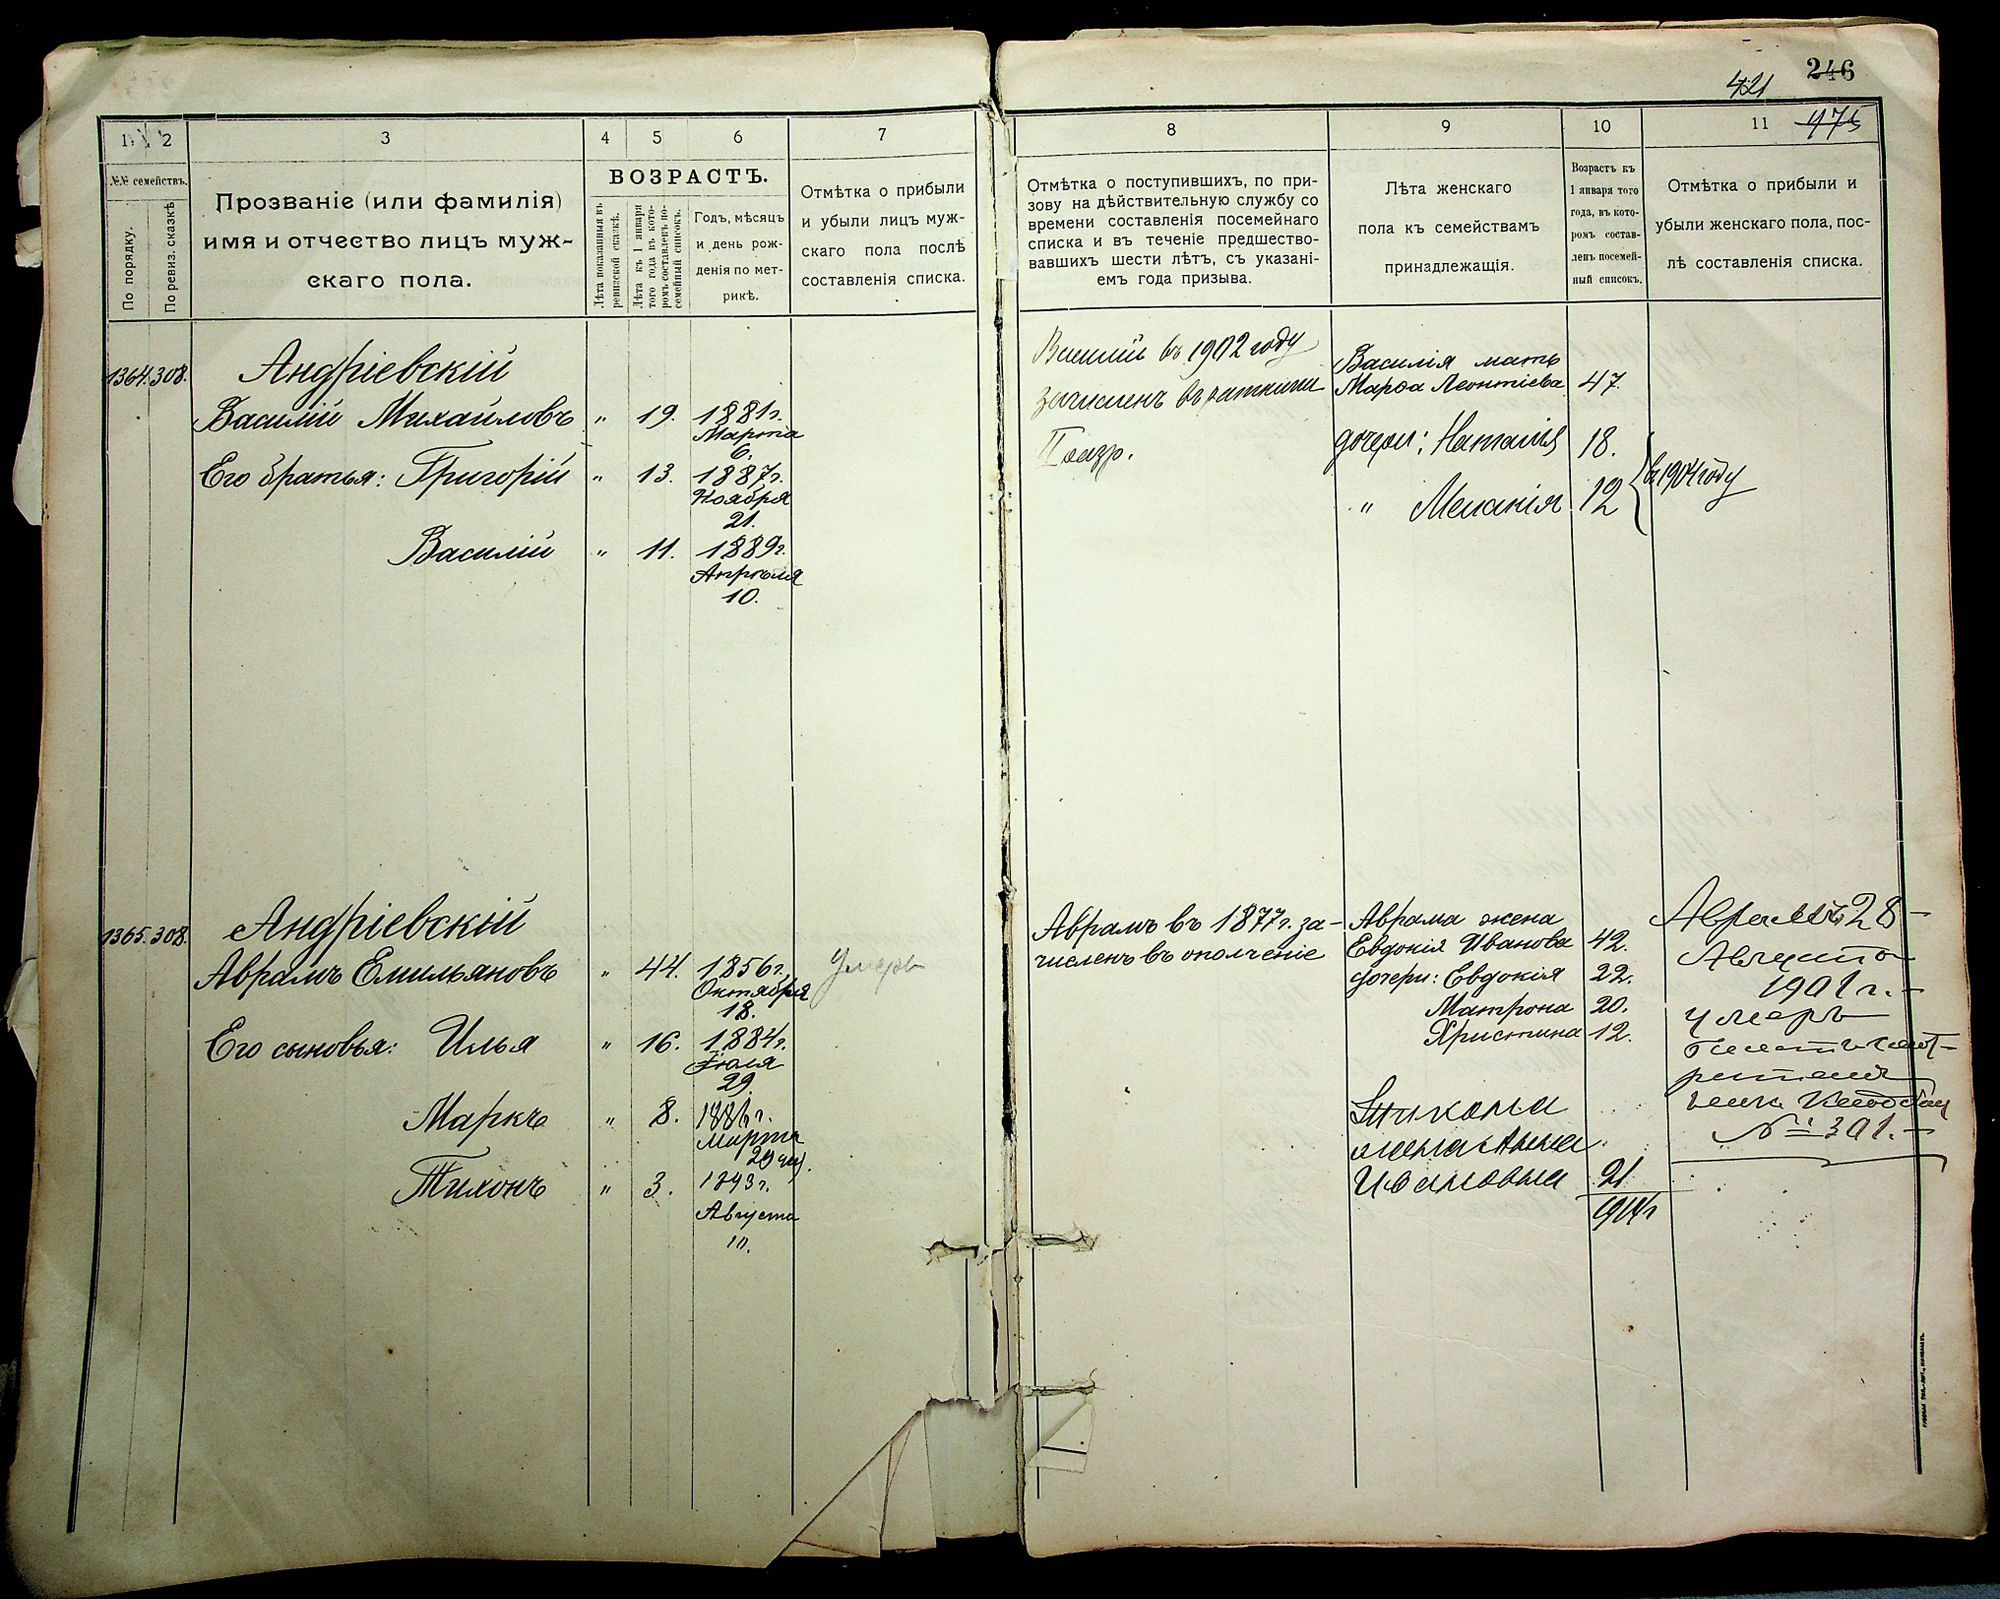 246
421
475
1
2
3
4
5
6
7
8
9
10
11
№№ семействъ.
По порядку.
По ревиз. сказкѣ
Прозваніе (или фамилія)
имя и отчество лицъ муж-
скаго пола.
ВОЗРАСТЪ.
Лѣта показанныя въ
ревизской сказкѣ.
Лѣта къ 1 января
того года въ кото-
ромъ составленъ по-
семейный списокъ.
Годъ, мѣсяцъ
и день рож-
денія по мет-
рикѣ.
Отмѣтка о прибыли
и убыли лицъ муж-
скаго пола послѣ
составленія списка.
Отмѣтка о поступившихъ, по при-
зову на дѣйствительную службу со
времени составленія посемейнаго
списка и въ теченіе предшество-
вавшихъ шести лѣтъ, съ указані-
емъ года призыва.
Лѣта женскаго
пола къ семействамъ
принадлежащія.
Возрастъ къ
1 января того
года, въ кото-
ромъ состав-
ленъ посемей-
ный списокъ.
Отмѣтка о прибыли и
убыли женскаго пола, пос-
лѣ составленія списка.
1364. 308. Андріевскій
Василій Михайловъ " 19. 1881 г.
Марта
6.
Его братья: Григорій " 13. 1887 г.
Ноября
21.
Василій " 11. 1889 г.
Апрѣля
10.
Василій въ 1902 году
зачисленъ въ ратники
II разр.
Василія мать
Марѳа Леонтіева 47.
дочери: Наталія 18.
" Меланія 12
въ 1904 году
1365. 308. Андріевскій
Аврамъ Емильяновъ " 44. 1856 г. Умеръ
Октября
18.
Его сыновья: Илья " 16. 1884 г.
Іюля
29.
Маркъ " 8.
Марта
Тихонъ " 3. 1893 г.
Августа
10.
Аврамъ въ 1877 г. за-
численъ въ ополченіе
Аврама жена
Евдокія Иванова 42.
дочери: Евдокія 22.
Матрона 20.
Христина 12.
Тихона
жена Анна
Ивановна 21
1914 г
Аврамъ 28
Августа
1901 г.
умеръ
№ 301.